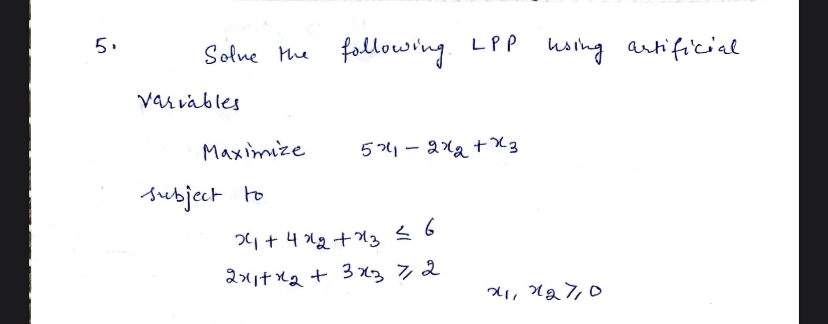 5. Solve the following LPP using artificial
variables
Maximize 5x₁ - 2x₂ + x₃
subject to
x₁ + 4x₂ + x₃ ≤ 6
2x₁ + x₂ + 3x₃ ≥ 2
x₁, x₂ ≥ 0